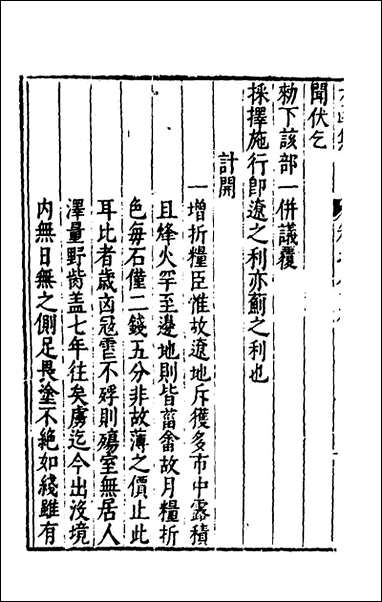 聞伏乞
勑下該部一併議覆
採擇施行卽遼之利亦薊之利也
計開
一增折糧臣惟故遼地斥獲多市中露積
且烽火罕至邊地則皆菑畬故月糧折
色每石僅二錢五分非故薄之價止此
耳比者歲凶冦䨥不殍則殤室無居人
澤量野胔盖七年往矣虜迄今出沒境
内無日無之側足畏塗不絶如綫雖有